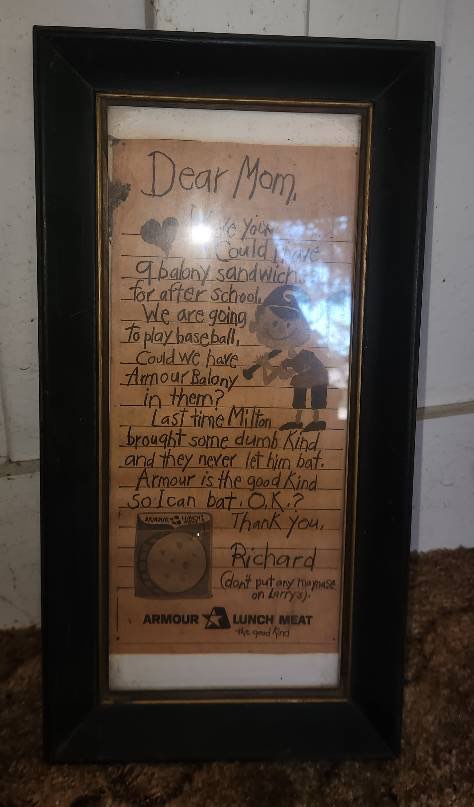 Dear Mom,
you
Could I have
9 balony sandwich
for after school.
We are going
to play baseball.
Could we have
Armour Balony
in them?
Last time Milton
brought some dumb kind
and they never let him bat.
Armour is the good kind
so I can bat. O.K.?
Thank you,
Richard
(don't put any maynase
on Larrys).
ARMOUR LUNCH MEAT
the good kind